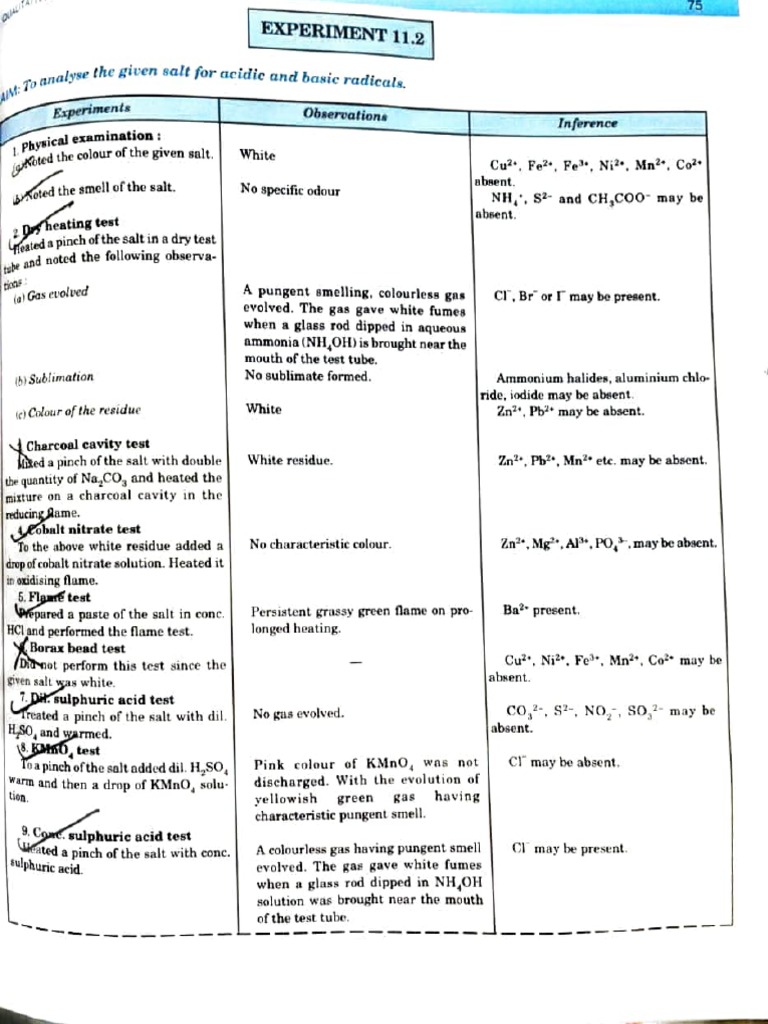 QUALITATI
75
EXPERIMENT 11.2
AIM: To analyse the given salt for acidic and basic radicals.
Experiments
Observations
Inference
1. Physical examination :
(a) Noted the colour of the given salt.
White
Cu²⁺, Fe²⁺, Fe³⁺, Ni²⁺, Mn²⁺, Co²⁺
absent.
(b) Noted the smell of the salt.
No specific odour
NH₄⁺, S²⁻ and CH₃COO⁻ may be
absent.
2. Dry heating test
Heated a pinch of the salt in a dry test
tube and noted the following observa-
tions :
(a) Gas evolved
A pungent smelling, colourless gas
evolved. The gas gave white fumes
when a glass rod dipped in aqueous
ammonia (NH₄OH) is brought near the
mouth of the test tube.
Cl⁻, Br⁻ or I⁻ may be present.
(b) Sublimation
No sublimate formed.
Ammonium halides, aluminium chlo-
ride, iodide may be absent.
(c) Colour of the residue
White
Zn²⁺, Pb²⁺ may be absent.
Charcoal cavity test
Mixed a pinch of the salt with double
the quantity of Na₂CO₃ and heated the
mixture on a charcoal cavity in the
reducing flame.
White residue.
Zn²⁺, Pb²⁺, Mn²⁺ etc. may be absent.
4. Cobalt nitrate test
To the above white residue added a
drop of cobalt nitrate solution. Heated it
in oxidising flame.
No characteristic colour.
Zn²⁺, Mg²⁺, Al³⁺, PO₄³⁻, may be absent.
5. Flame test
Prepared a paste of the salt in conc.
HCl and performed the flame test.
Persistent grassy green flame on pro-
longed heating.
Ba²⁺ present.
Borax bead test
Did not perform this test since the
given salt was white.
—
Cu²⁺, Ni²⁺, Fe³⁺, Mn²⁺, Co²⁺ may be
absent.
7. Dil. sulphuric acid test
Treated a pinch of the salt with dil.
H₂SO₄ and warmed.
No gas evolved.
CO₃²⁻, S²⁻, NO₂⁻, SO₃²⁻ may be
absent.
8. KMnO₄ test
To a pinch of the salt added dil. H₂SO₄
warm and then a drop of KMnO₄ solu-
tion.
Pink colour of KMnO₄ was not
discharged. With the evolution of
yellowish green gas having
characteristic pungent smell.
Cl⁻ may be absent.
9. Conc. sulphuric acid test
Heated a pinch of the salt with conc.
sulphuric acid.
A colourless gas having pungent smell
evolved. The gas gave white fumes
when a glass rod dipped in NH₄OH
solution was brought near the mouth
of the test tube.
Cl⁻ may be present.